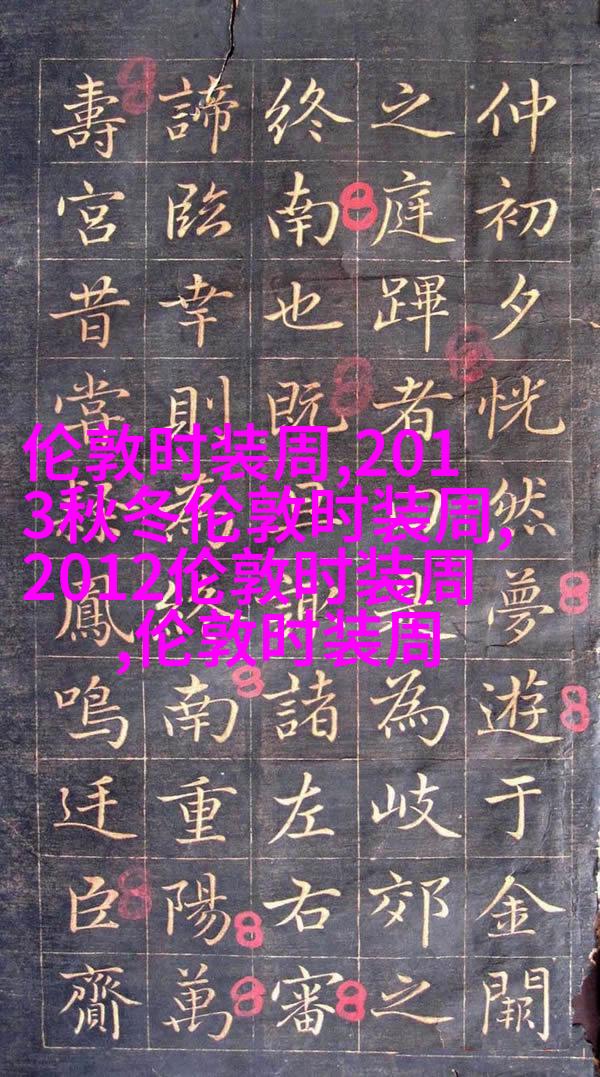 仲初夕恍然夢遊于金闕
之庭蹕者是為岐郊之
終南也既謂諸左右審
諦臨幸則為終南重陽萬
壽宮昔鳳鳴廷臣齎
伦敦时装周,201
3秋冬伦敦时装周,
2012伦敦时装周
,伦敦时装周